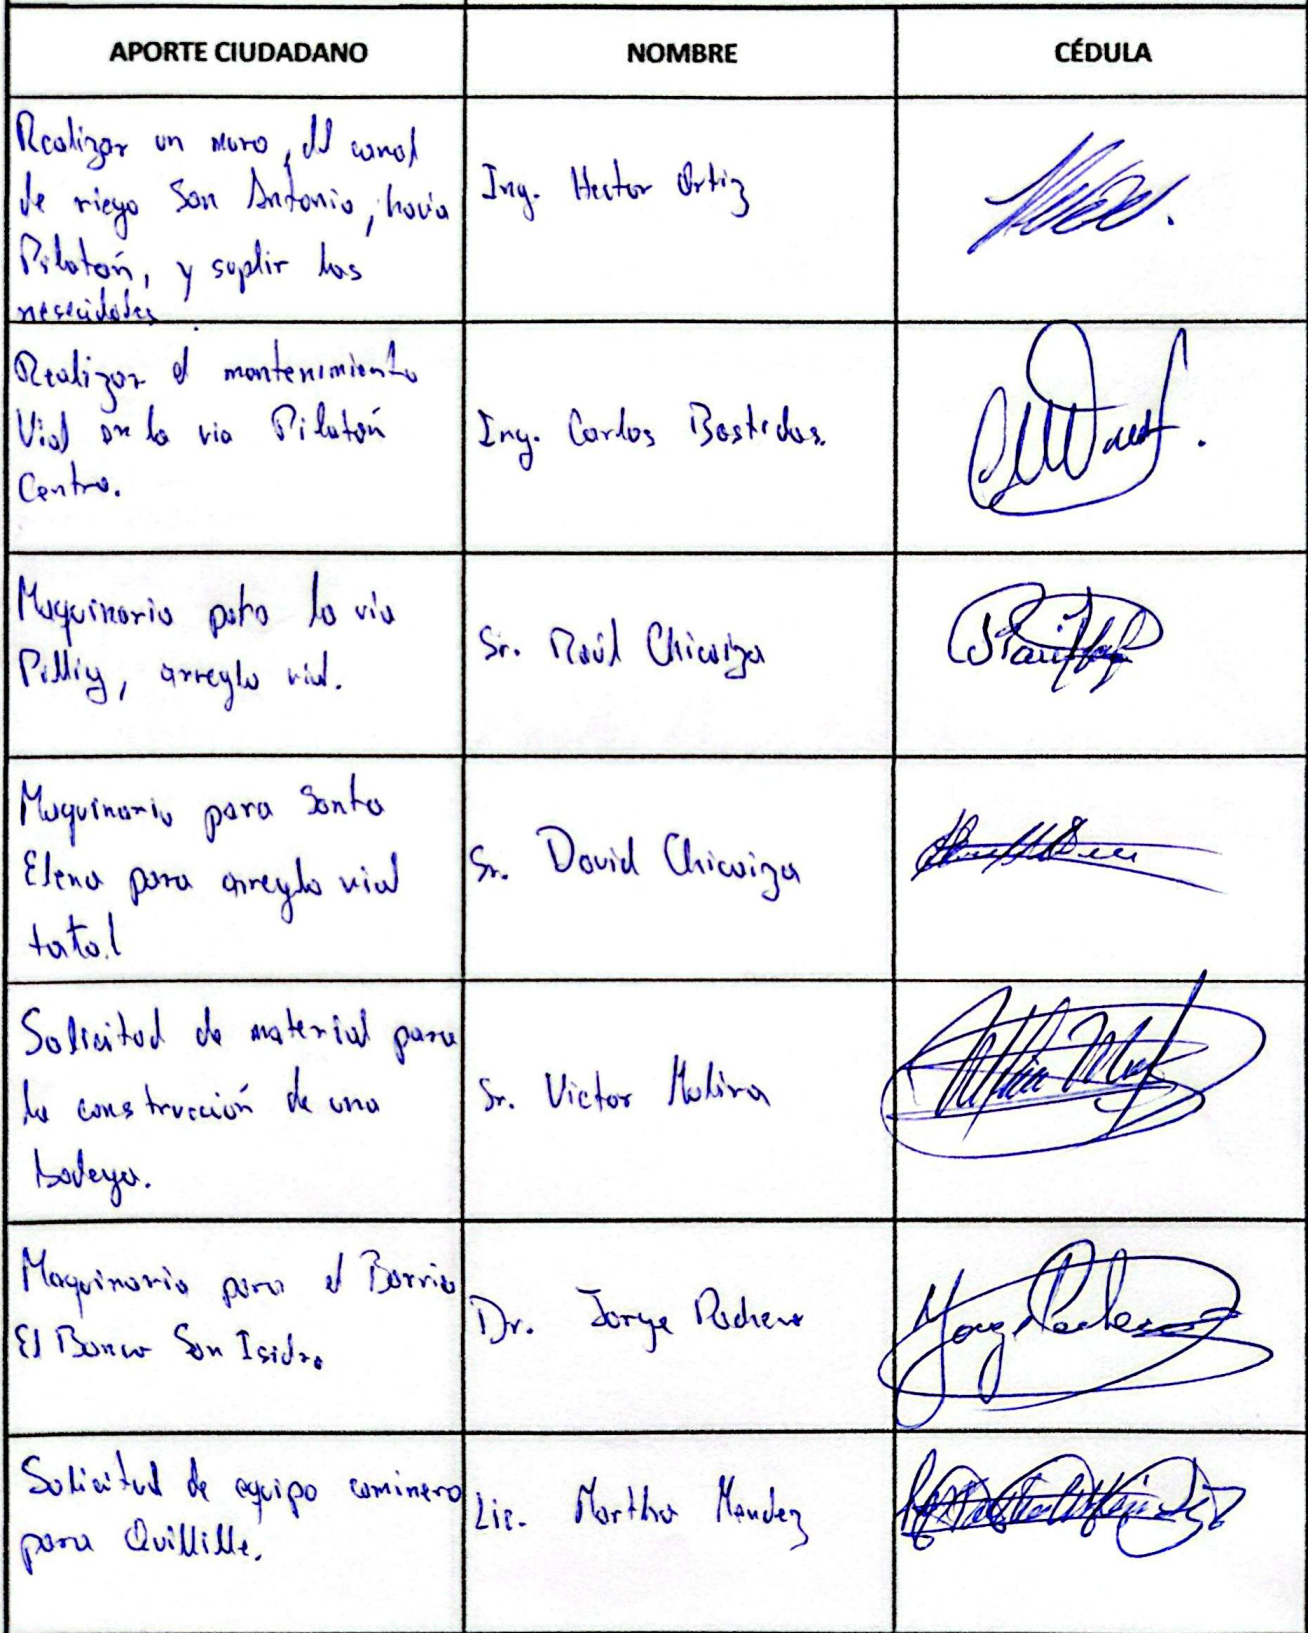 APORTE CIUDADANO NOMBRE CÉDULA
Realizar un muro, del canal
de riego San Antonio, hacia
Pilatón, y suplir las
nesecidades
Ing. Hector Ortiz
Realizar el mantenimiento
Vial en la via Pilatón
Centro.
Ing. Carlos Bastidas.
Maquinaria para la via
Pilliy, arreglo vial.
Sr. Raúl Chicaiza
Maquinaria para Santa
Elena para arreglo vial
total
Sr. David Chicaiza
Solicitud de material para
la construcción de una
bodega.
Sr. Victor Molina
Maquinaria para el Barrio
El Banco San Isidro
Dr. Jorge Pacheco
Solicitud de equipo caminero
para Quillille.
Lic. Martha Mendez